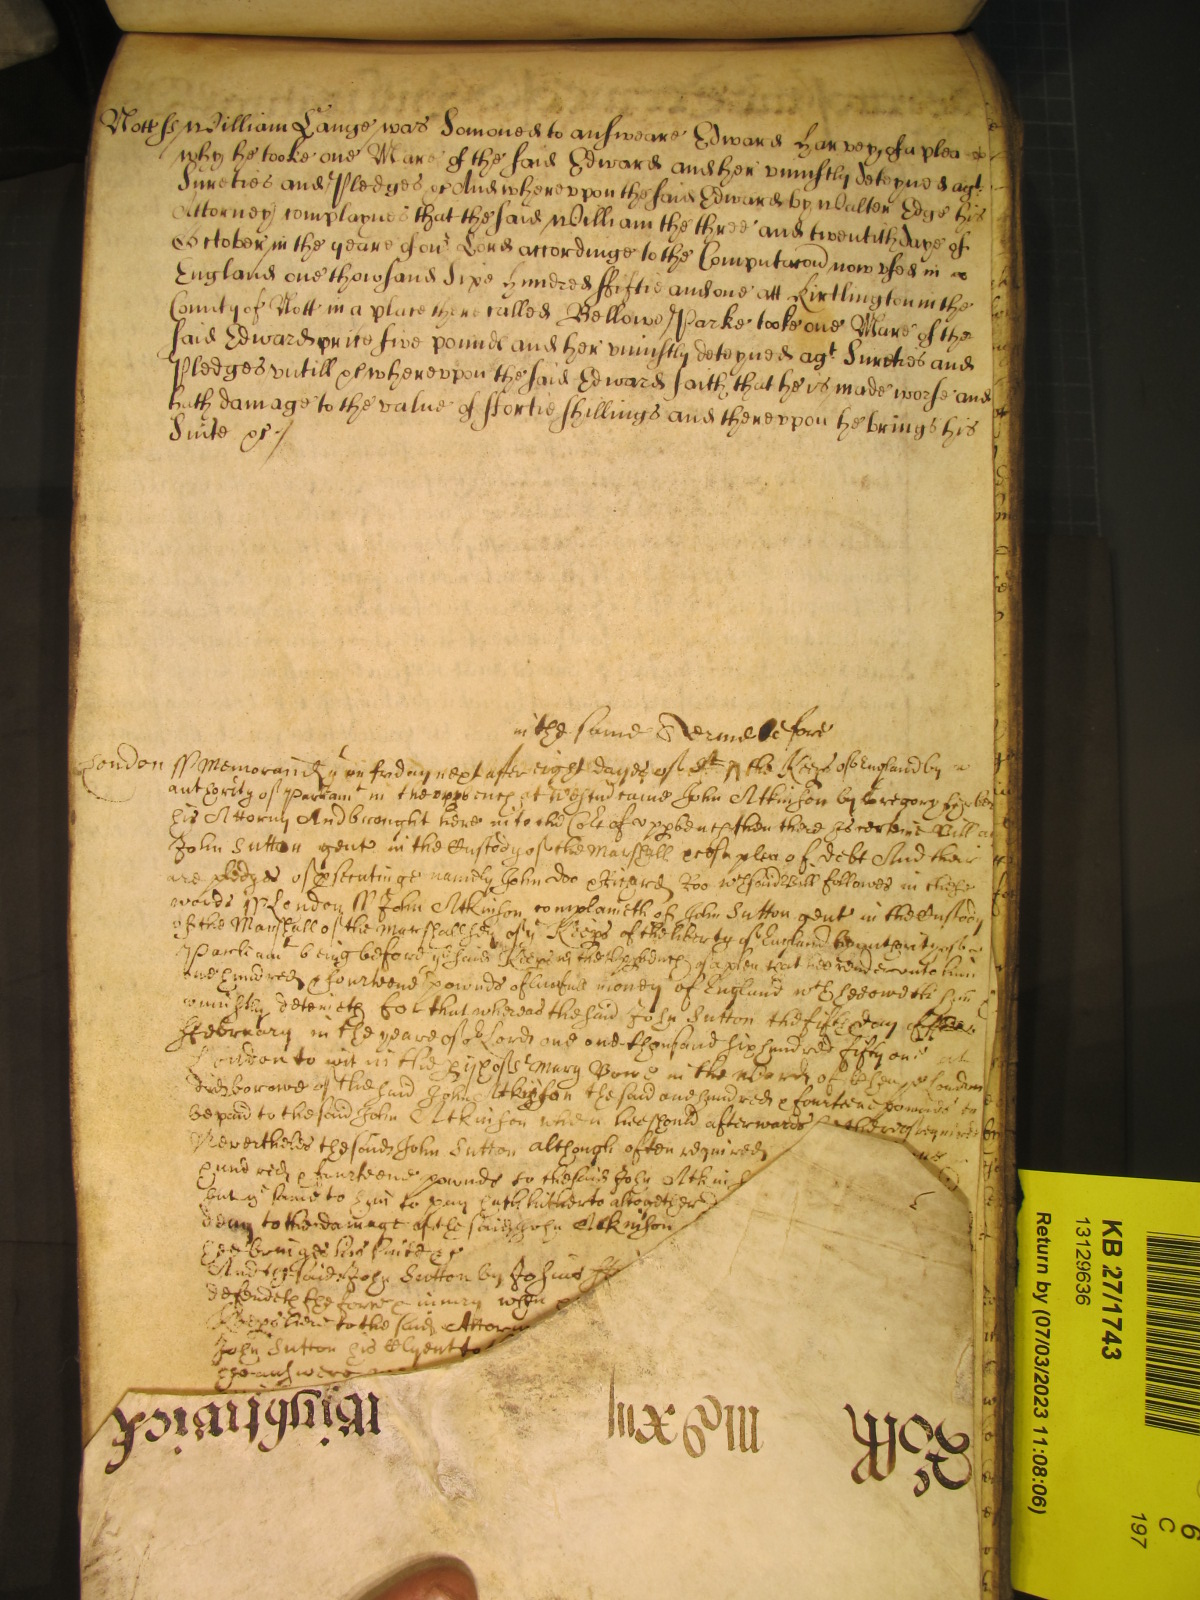 Notts ss William Lange was Somoned to answeare Edward Harvey of a plea
why he tooke one Mare of the said Edward and her uniustly deteyned agt
Sureties and Pledges &c And whereupon the said Edward by Walter Edge his
Attorney complaynes that the said William the three and twentith daye of
October in the yeare of our Lord accordinge to the Computacon now used in
England one thowsand Sixe hundred ffiftie and one att Kirtlington in the
County of Nott in a place there called Bellowe Parke tooke one Mare of the
said Edward price five pounds and her uniustly deteyned agt Sureties and
Pledges untill &c whereupon the said Edward saith that he is made worse and
hath damage to the value of ffortie shillings and thereupon he brings his
Suite &c
in the same Terme before
London ss Memorand yt on fryday next after eight dayes of St the Keeps of England by
authority of Parliamt in the uppbench at Westmr came John Atkinson by Gregory
his Attorny And brought here into the Cort of uppbench then there his certeine Bill agt
John Sutton gent in the Custody of the Marshall &c of a plea of debt And their
are pledges of psecutinge namely John Doo & Richard Roo wch said Bill followes in these
words ss London ss John Atkinson complaineth of John Sutton gent in the Custody
of the Marshall of the Marshallsey of ye Keeps of the liberty of England by authority of
Parliamt being before ye said Keeps in the Uppbench of a plea that hee render unto him
one hundred & fourteene pownds of lawfull money of England wch hee oweth him &
uniustly deteineth For that whereas the said John Sutton the fifth day of
ffebruary in the yeare of or Lord one one thousand six hundred fifty one at
London to wit in the pish of St Mary Bowe in the Ward of Cheape London
did borowe of the said John Atkinson the said one hundred & fourteene pownds to
be paid to the said John Atkinson when hee should afterwards be thereof required
Neverthelesse the said John Sutton although often required
hundred & fourteene pownds to the said John Atkins
but ye same to him to pay hath hitherto altogether
deny to the damage of the said John Atkinson
hee bringes his suite &c
And ye said John Sutton by Josias
defendeth the force & iniury when
Keeps here to the said Attorn
John Sutton his Clyent to
the answere
Wightwick
Mo xiij
Rolle
KB 27/1743
13129636
Return by (07/03/2023 11:08:06)
6
C
197